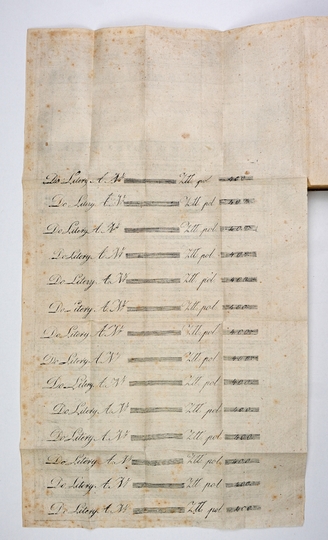 Do Litery A. N°. Złł pol. 400
Do Litery A. N°. Złł pol. 400
Do Litery A. N°. Złł pol. 400
Do Litery A. N°. Złł pol. 400
Do Litery A. N°. Złł pol. 400
Do Litery A. N°. Złł pol. 400
Do Litery A. N°. Złł pol. 400
Do Litery A. N°. Złł pol. 400
Do Litery A. N°. Złł pol. 400
Do Litery A. N°. Złł pol. 400
Do Litery A. N°. Złł pol. 400
Do Litery A. N°. Złł pol. 400
Do Litery A. N°. Złł pol. 400
Do Litery A. N°. Złł pol. 400